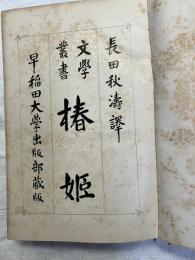 長田秋濤譯
文學
叢書
椿姫
早稲田大學出版部藏版